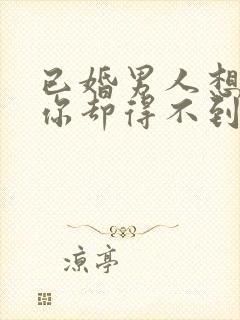 已婚男人想
你却得不到
凉亭